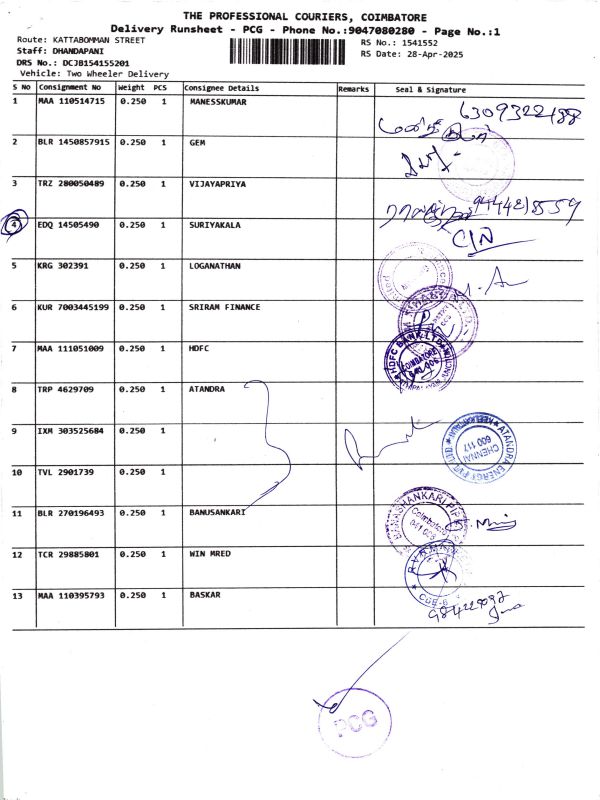 THE PROFESSIONAL COURIERS, COIMBATORE
Delivery Runsheet - PCG - Phone No.:9047080280 - Page No.:1
Route: KATTABOMMAN STREET
RS No.: 1541552
Staff: DHANDAPANI
RS Date: 28-Apr-2025
DRS No.: DCJB154155201
Vehicle: Two Wheeler Delivery
S No Consignment No Weight PCS Consignee Details Remarks Seal & Signature
1 MAA 110514715 0.250 1 MANESSKUMAR 6309322488
2 BLR 1450857915 0.250 1 GEM
3 TRZ 280050489 0.250 1 VIJAYAPRIYA 9444218559
4 EDQ 14505490 0.250 1 SURIYAKALA C/N
5 KRG 302391 0.250 1 LOGANATHAN
6 KUR 7003445199 0.250 1 SRIRAM FINANCE
7 MAA 111051009 0.250 1 HDFC
HDFC BANK LTD
COIMBATORE
641 006
8 TRP 4629709 0.250 1 ATANDRA
9 IXM 303525684 0.250 1
ATANDRA ENERGY PVT. LTD
CHENNAI
600 117
10 TVL 2901739 0.250 1
11 BLR 270196493 0.250 1 BANUSANKARI
BANASHANKARI
Coimbatore
641 006
12 TCR 29885801 0.250 1 WIN MRED
CBE-6
13 MAA 110395793 0.250 1 BASKAR
PCG